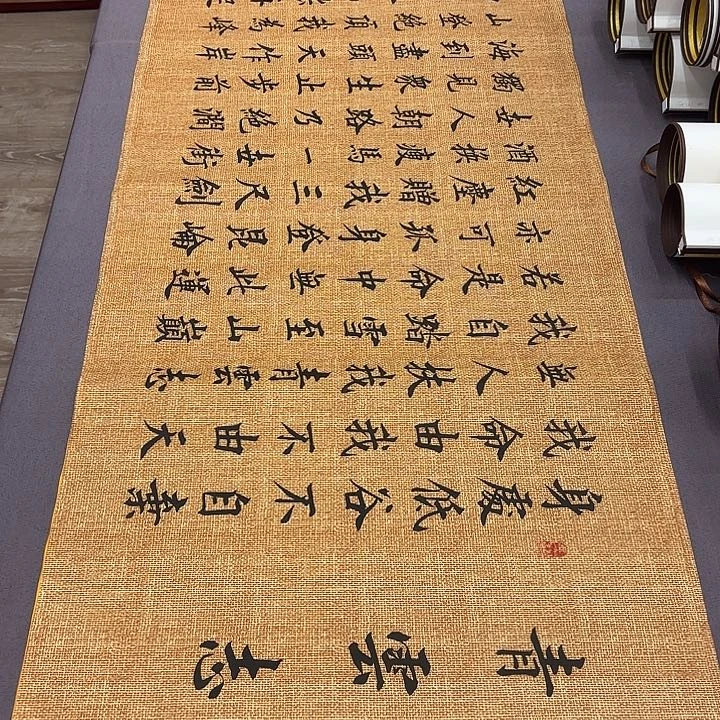 青雲志
身處低谷不自棄
我命由我不由天
無人扶我青雲志
我自踏雪至山巔
若是命中無此運
亦可孤身登昆崙
紅塵贈我三尺劍
酒換瘦馬一世
世人朝路乃絕澗
獨見衆生止步前
海到盡頭天作岸
山登絕頂我爲峰